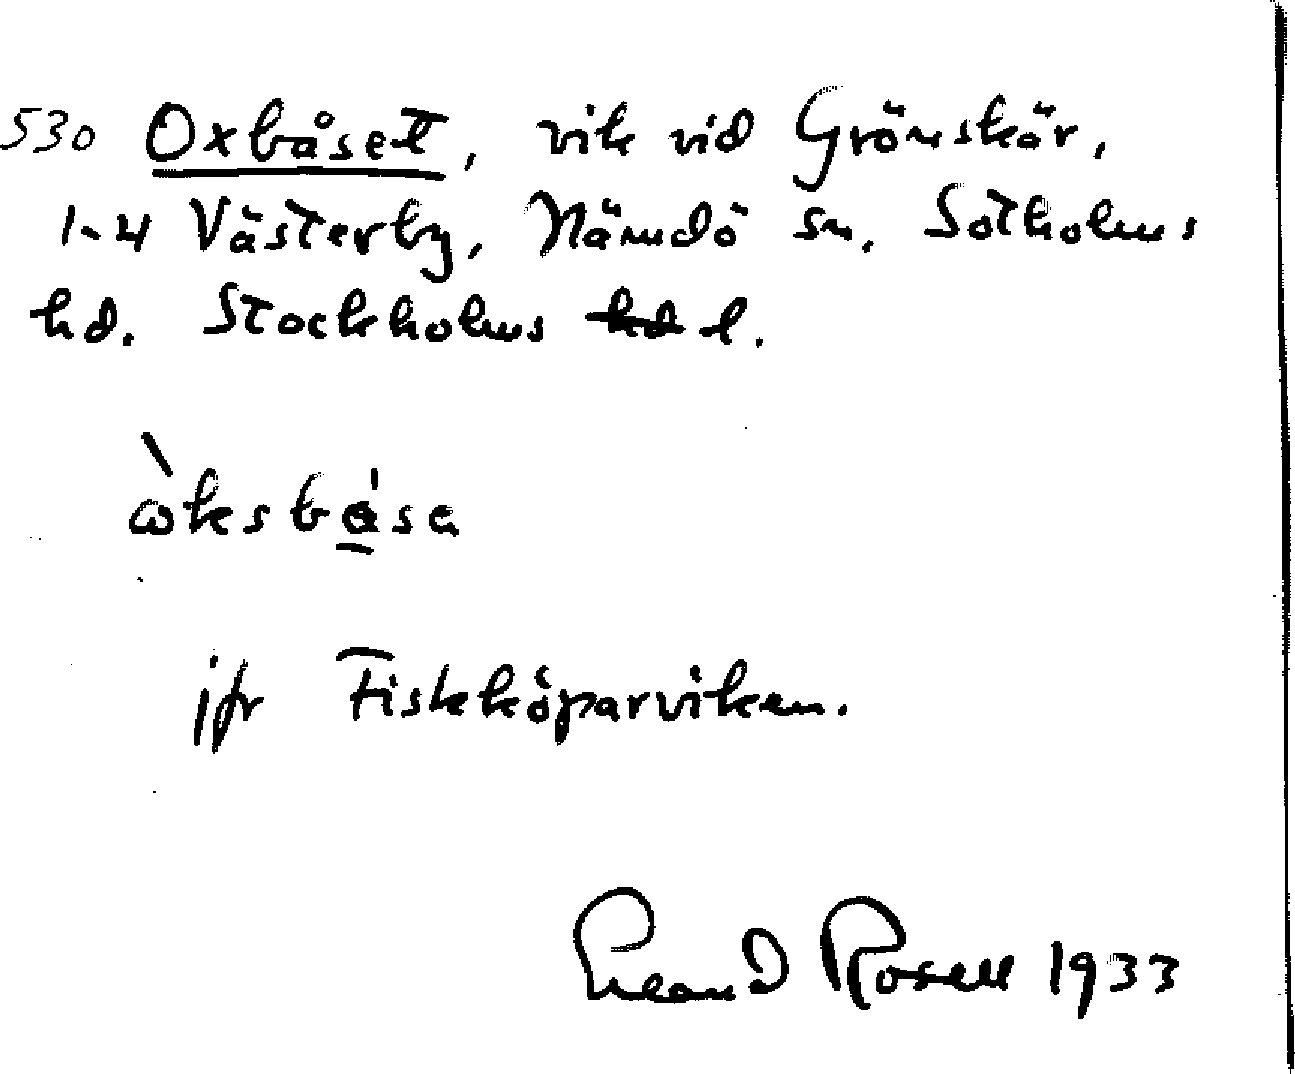 530 Oxbåset, vik vid Grönskär,
1-4 Västerby, Nämdö sn. Sotholms
hd. Stockholms hd l.
òksbåsa
jfr Fiskköparviken.
Rosell 1933